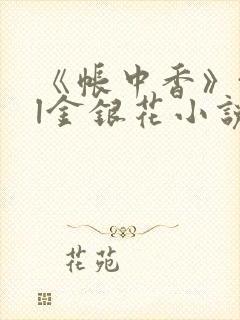 《帐中香》
l金银花小说
花苑